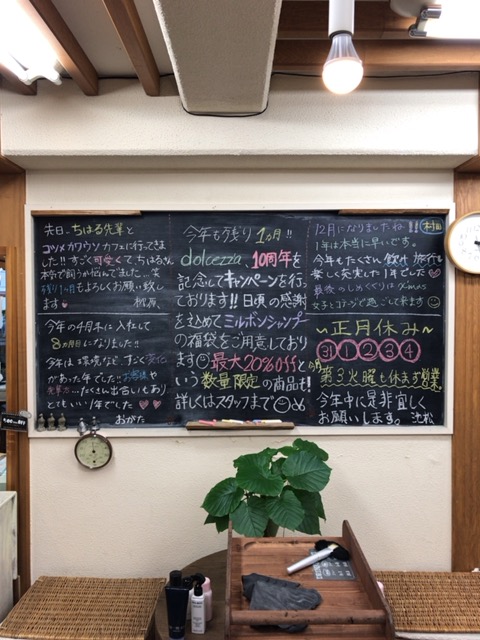 先日、ちはる先輩と
コツメカワウソカフェに行ってきま
した!! すごく可愛くて、ちはるさん
本気で飼うか悩んでました…笑
残り1ヶ月もよろしくお願い致し
ます
今年の4月末に入社して
8ヵ月目になりました!!
今年は環境など、すごく変化
があった年でした!! お客様や
先輩方…たくさん出会いもあり
とてもいい1年でした
おがた
今年も残り1ヵ月!!
dolcezza、10周年を
記念してキャンペーンを行っ
ております!! 日頃の感謝
を込めてミルボンシャンプー
の福袋をご用意しており
ます 最大20%offと
いう数量限定の商品も!
詳しくはスタッフまで め
12月になりましたね!! 本田
1年は本当に早いです。
今年もたくさん飲み、旅行も
楽しく充実した1年でした
最後のしめくくりはXmas
女子とコテージで過ごして来ます
~正月休み~
31 1 2 3 4
第3火曜も休まず営業
今年中に是非宜しく
お願いします。 池松